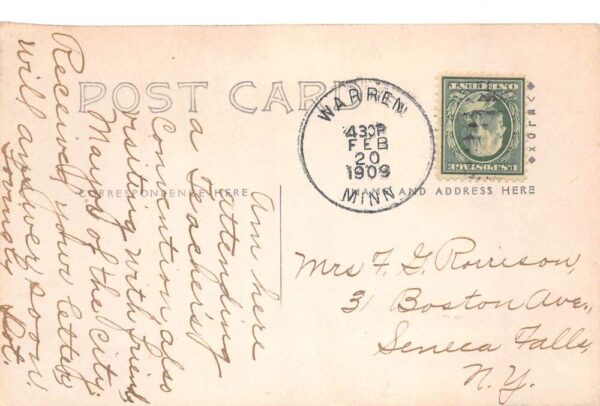 POST CARD
CORRESPONDENCE HERE
NAME AND ADDRESS HERE
WARREN
430P
FEB
20
1909
MINN
U.S. POSTAGE
ONE CENT
VELOX
Am here
attending
a Teacher's
Convention also
visiting with friends
Mayor of the City.
Received your letter
will answer soon.
Lovingly
Dot.
Mrs F. G.
3 Boston Ave.,
Seneca Falls,
N.Y.